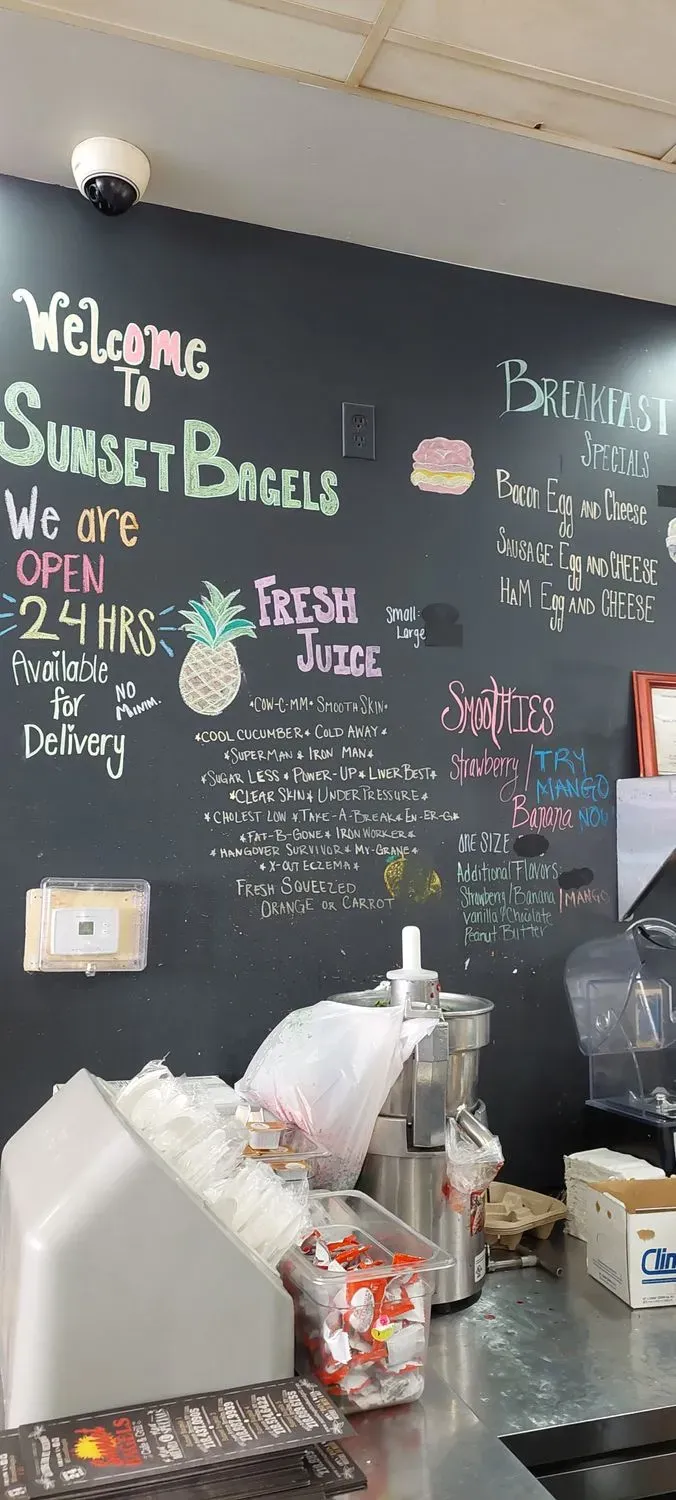 Welcome
To
Sunset Bagels
We are
OPEN
24 HRS
Available
for
Delivery
NO
Minim.
BREAKFAST
SPECIALS
Bacon Egg AND Cheese
SAUSAGE Egg AND CHEESE
HaM Egg AND CHEESE
FRESH
JUICE
Small:
Large
*COW-C-MM* SMOOTH SKIN*
*COOL CUCUMBER* COLD AWAY*
*SUPERMAN* IRON MAN*
*SUGAR LESS* POWER-UP* LIVER BEST*
*CLEAR SKIN* UNDER PRESSURE*
*CHOLEST LOW *TAKE-A-BREAK* EN-ER-G*
*FAT-B-GONE* IRON WORKER*
*HANGOVER SURVIVOR* MY-GRANE*
*X-OUT ECZEMA*
FRESH SQUEEZED
ORANGE OR CARROT
SMOOTHIES
Strawberry/
Banana
TRY
MANGO
NOW
ONE SIZE
Additional Flavors:
Strawberry/Banana/MANGO
Vanilla/Chocolate
Peanut Butter
Clin
BAGELS